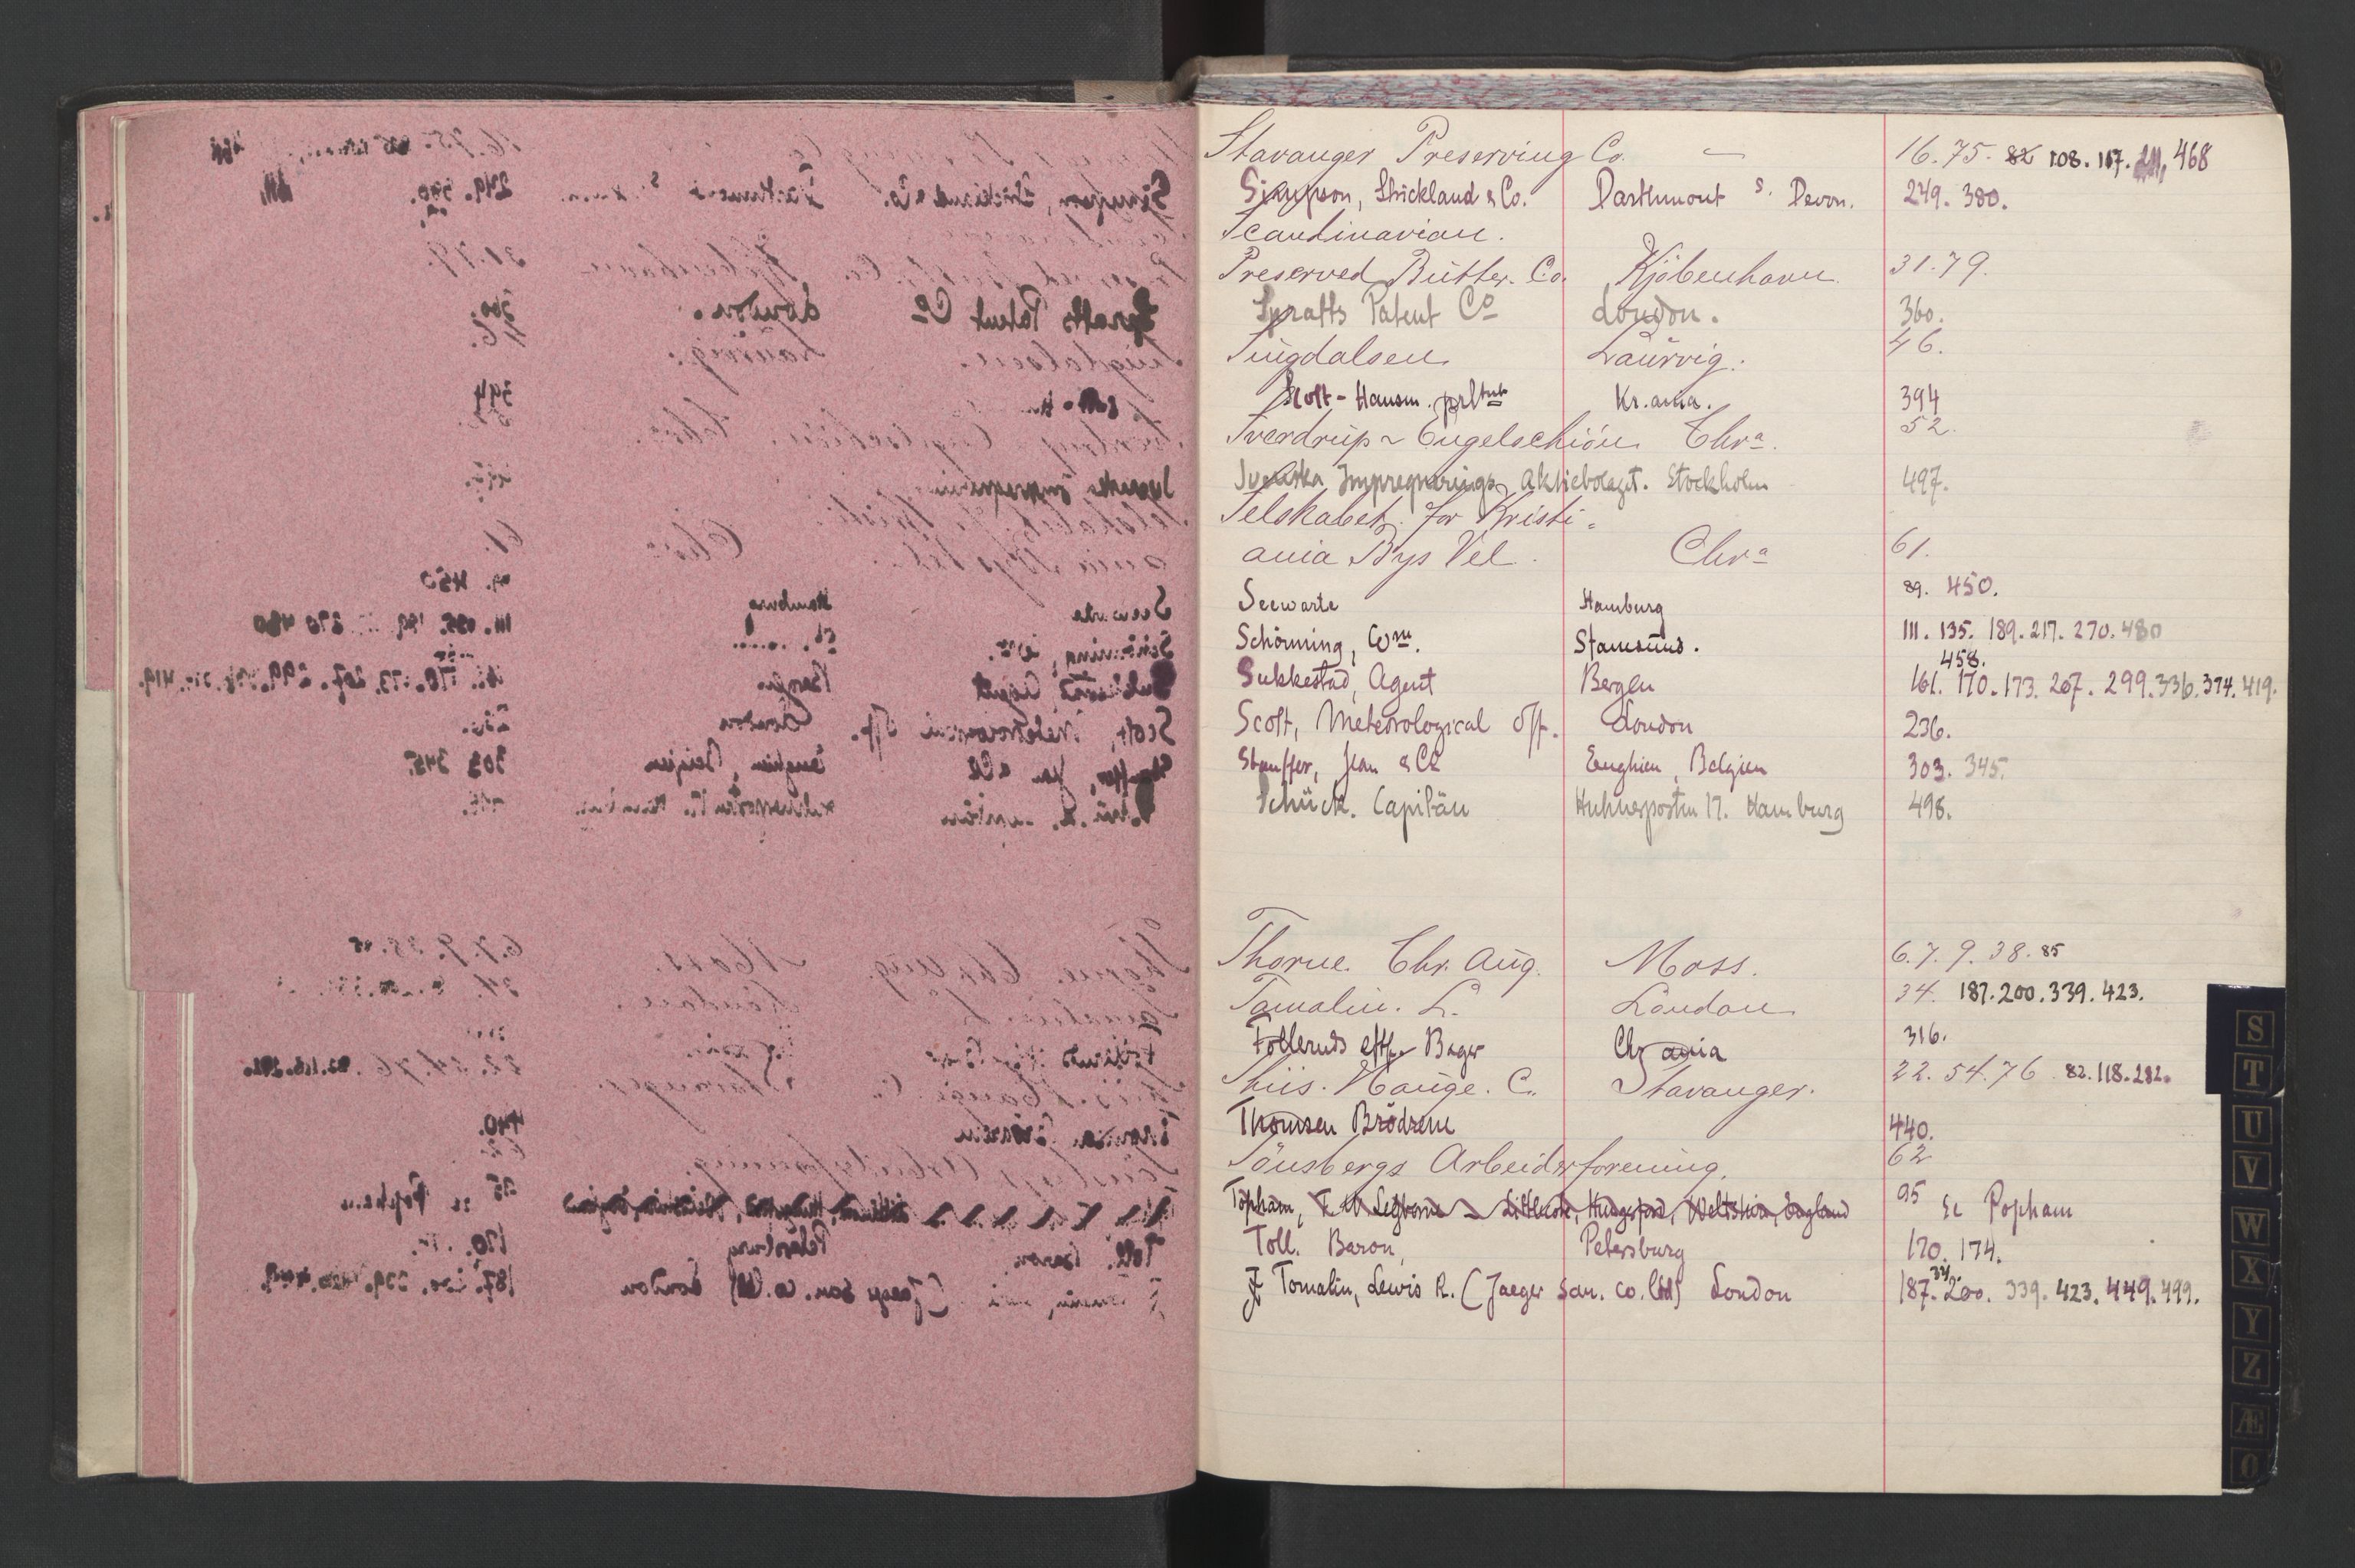 Stavanger Preserving Co. 16. 75. 82 108. 167. 211, 468
Simpson, Strickland & Co. Darthmout S. Devon. 249. 380.
Scandinavian.
Preserved Butter. Co. Kjöbenhavn 31. 79.
Spratts Patent Co London. 360.
Sugdalsen Laurvig. 46.
Scott-Hansen. prltnt Kr.ania. 394
Sverdrup ~ Engelschiön Chra. 52.
Svenska Impregnerings Aktiebolaget. Stockholm 497.
Selskabet for Kristi-
ania Bys Vel. Chra 61.
Seewarte Hamburg 89. 450.
Schörning, Wm. Stamsund. 111. 135. 189. 217. 270. 480
458.
Sukkestad, Agent Bergen 161. 170. 173. 207. 299. 336. 374. 419.
Scott, Meteorological Off. London 236.
Stauffer, Jean & Co Enghien, Belgien 303. 345.
Schück. Capitän Huhnerposten 17. Hamburg 498.
Thorne Chr. Aug. Moss. 6. 7. 9. 38. 85
Tomalin. L. London 34. 187. 200. 339. 423.
Tollerud eftf. Bager Chrania 316.
Thiis. Hauge. C. Stavanger. 22. 54. 76. 82. 118. 282.
Thomsen Brödrene 440.
Tönsbergs Arbeiderforening. 62
Topham, Hungerford, England 95 Popham
Toll. Baron, Petersburg 170. 174.
34.
Tomalin, Lewis R. (Jaeger San. Co. Ltd) London 187. 200. 339. 423. 449. 499.
S
T
U
V
W
X
Y
Z
Æ
Ö